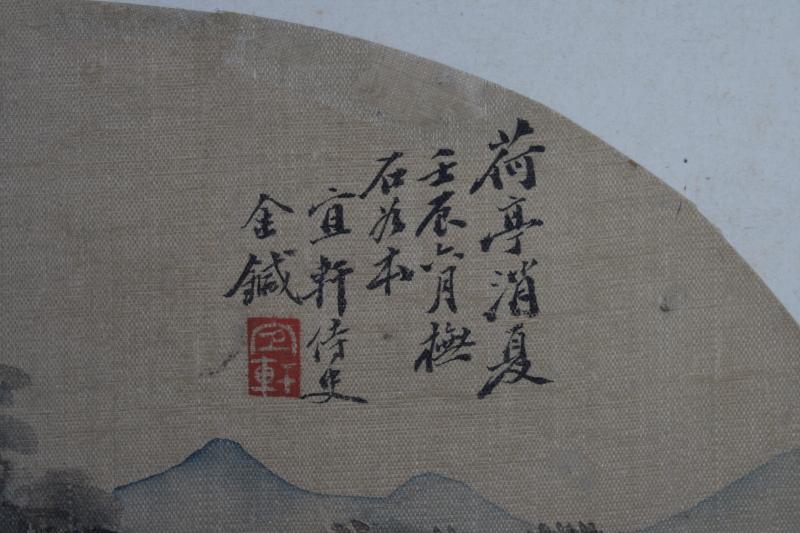 荷亭消夏
壬辰六月橅
石谷本
宜軒侍史
金鍼
宜軒